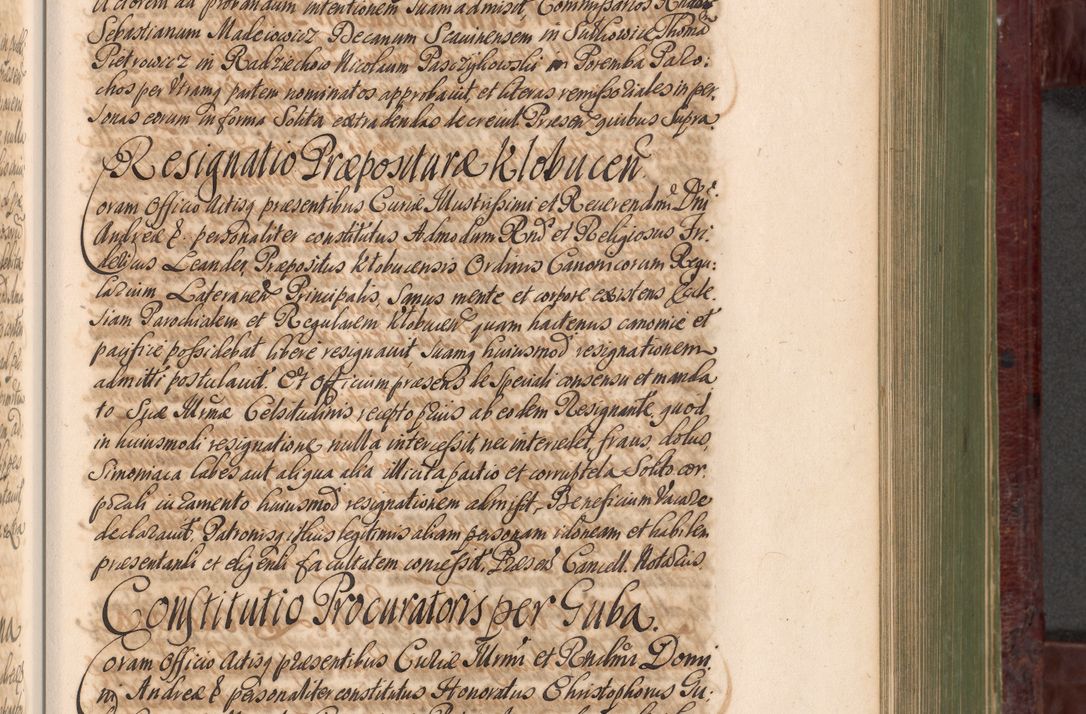 Actorem ad probandum intentionem suam admisit, Commissarios
Sebastianum Madeiowicz Decanum Scawinensem in Sulkowice Thoma
Pietrowicz in Radziechow Nicolaum Paszzykowski in Poremba Palo:
chos per utramq partem nominatos approbavit, et literas remissoriales in per
sonas eorum in forma solita extradendas decrevit. Præsen quibus supra
Resignatio Præposituræ Klobucen
Coram Officio Actisq præsentibus Curiæ Illustrissimi et Reverendmi Dni
Andreæ &. personaliter constitutus Admodum Rnd et Religiosus Fri:
dericus Leander Præpositus Klobucensis Ordinis Canonicorum Regu:
larium Lateranen Principalis, Sanus mente et corpore existens Eccle
siam Parochialem et Regularem Klobucen quam hactenus canonice et
pacifice possidebat libere resignavit, suamq huiusmod resignationem
admitti postulavit. Et Officium præsens de speciali consensu et manda
to Suæ Illrmæ Celsitudinis, recepto prius ab eodem Resignante, quod
in huiusmodi resignatione nulla intercessit, nec intercedet, fraus, dolus,
Simoniaca labes aut aliqua alia illicita pactio et corruptela solito cor
porali iuramento huiusmod resignationem admisit, Beneficium vacare
declaravit, Patronisq illius legitimis aliam personam idoneam et habilem
præsentandi et eligendi facultatem concessit. Præsen Cancell. Notarius
Constitutio Procuratoris per Guba.
Coram Officio Actisq præsentibus Curiæ Illrmi et Rndmi Domi
ni Andreæ & personaliter constitutus Honoratus Christophorus Gu: